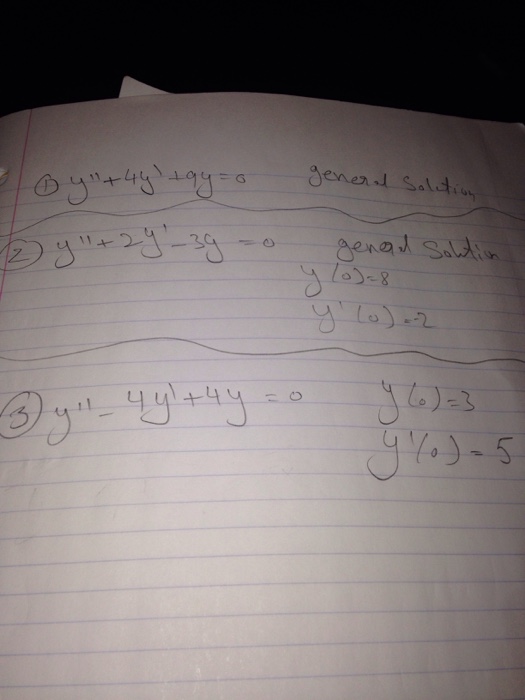 ① y'' + 4y' + 9y = 0 general Solution
② y'' + 2y' - 3y = 0 general Solution
y(0) = 8
y'(0) = -2
③ y'' - 4y' + 4y = 0 y(0) = 3
y'(0) = 5